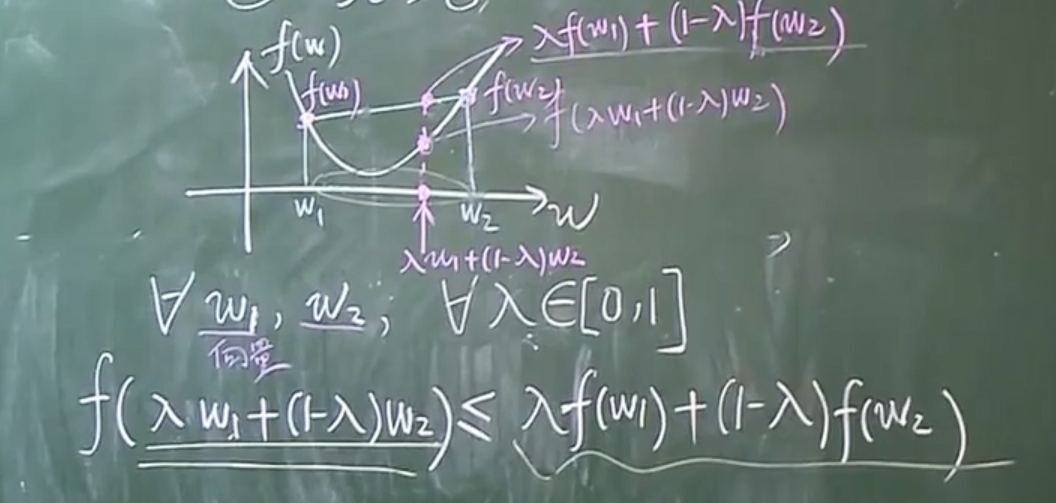 f(w)
λf(w₁)+(1-λ)f(w₂)
f(w₁)
f(w₂)
f(λw₁+(1-λ)w₂)
w₁
w₂
w
λw₁+(1-λ)w₂
∀ w₁, w₂, ∀ λ∈[0,1]
向量
f(λw₁+(1-λ)w₂)≤λf(w₁)+(1-λ)f(w₂)